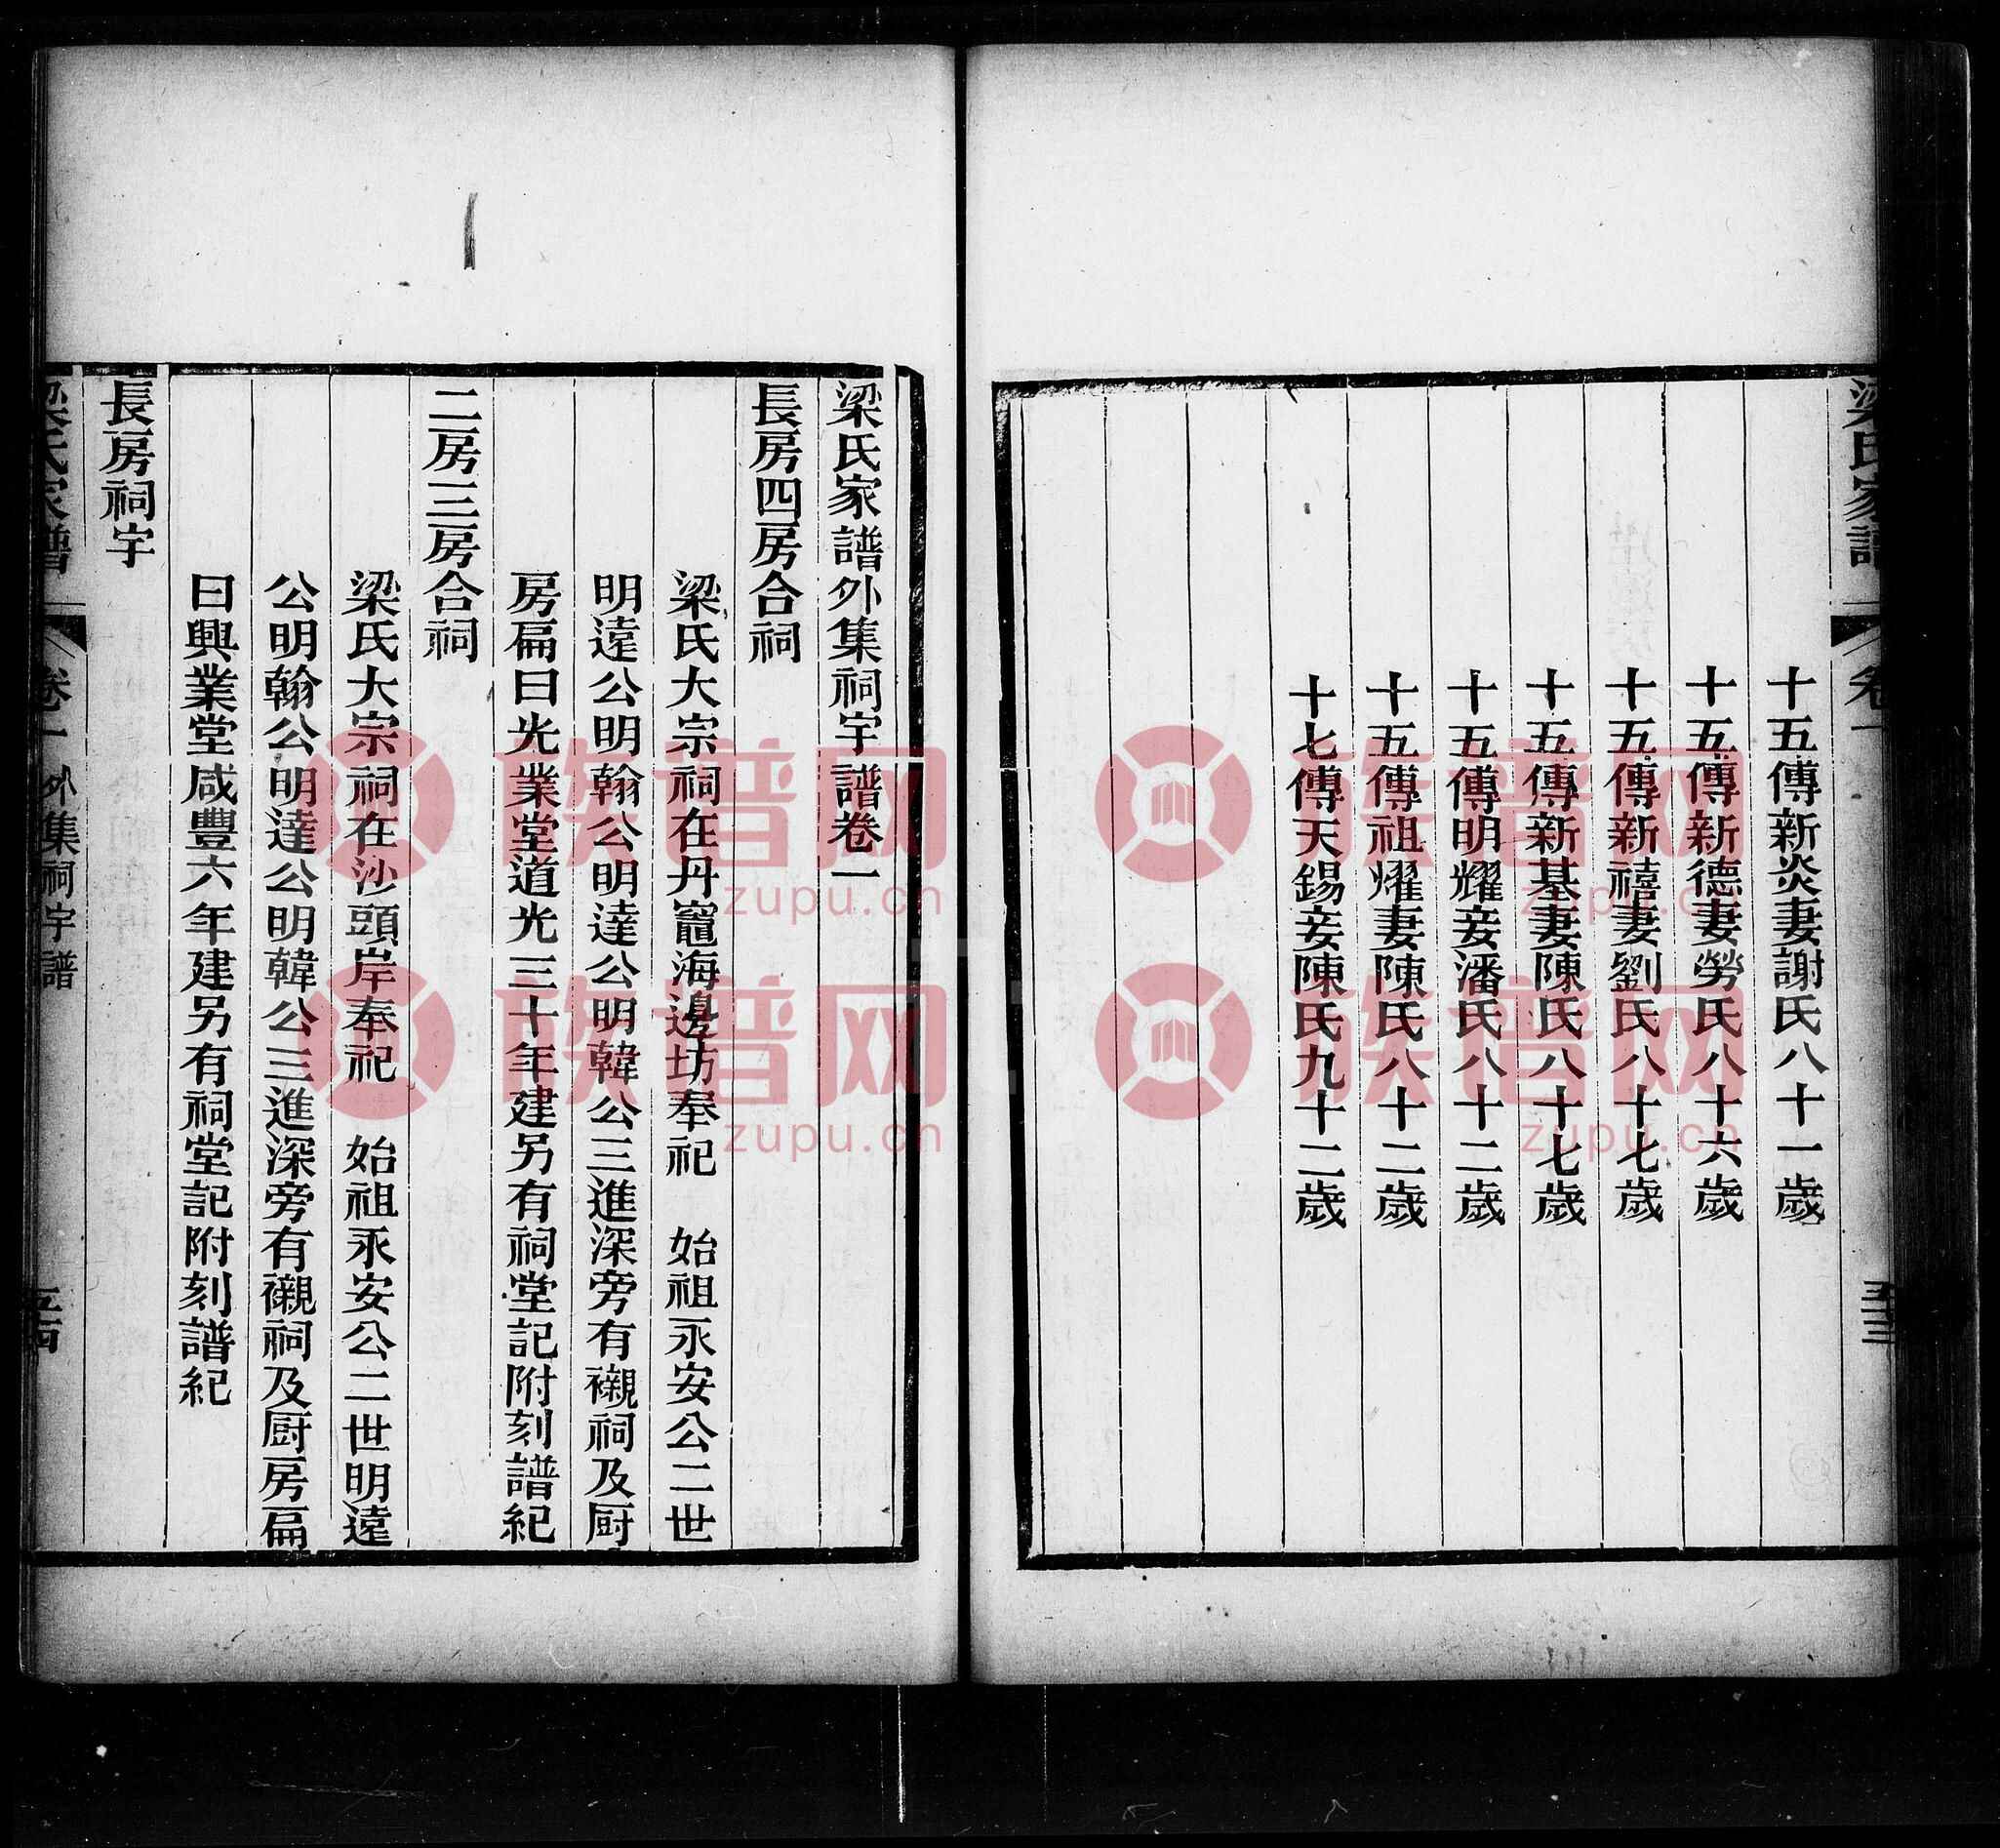 梁氏家譜
卷一
五十三
十五傳新炎妻謝氏八十一歲
十五傳新德妻勞氏八十六歲
十五傳新禧妻劉氏八十七歲
十五傳新基妻陳氏八十七歲
十五傳明耀妾潘氏八十二歲
十五傳祖耀妻陳氏八十二歲
十七傳天錫妾陳氏九十二歲
梁氏家譜外集祠宇譜卷一
長房四房合祠
梁氏大宗祠在丹竈海邊坊奉祀 始祖永安公二世
明遠公明翰公明達公明韓公三進深旁有襯祠及厨
房扁曰光業堂道光三十年建另有祠堂記附刻譜紀
二房三房合祠
梁氏大宗祠在沙頭岸奉祀 始祖永安公二世明遠
公明翰公明達公明韓公三進深旁有襯祠及厨房扁
曰興業堂咸豐六年建另有祠堂記附刻譜紀
長房祠宇
梁氏家譜
卷一 外集祠宇譜
五十四
族谱网
zupu.cn
族谱网
zupu.cn
族谱网
zupu.cn
族谱网
zupu.cn